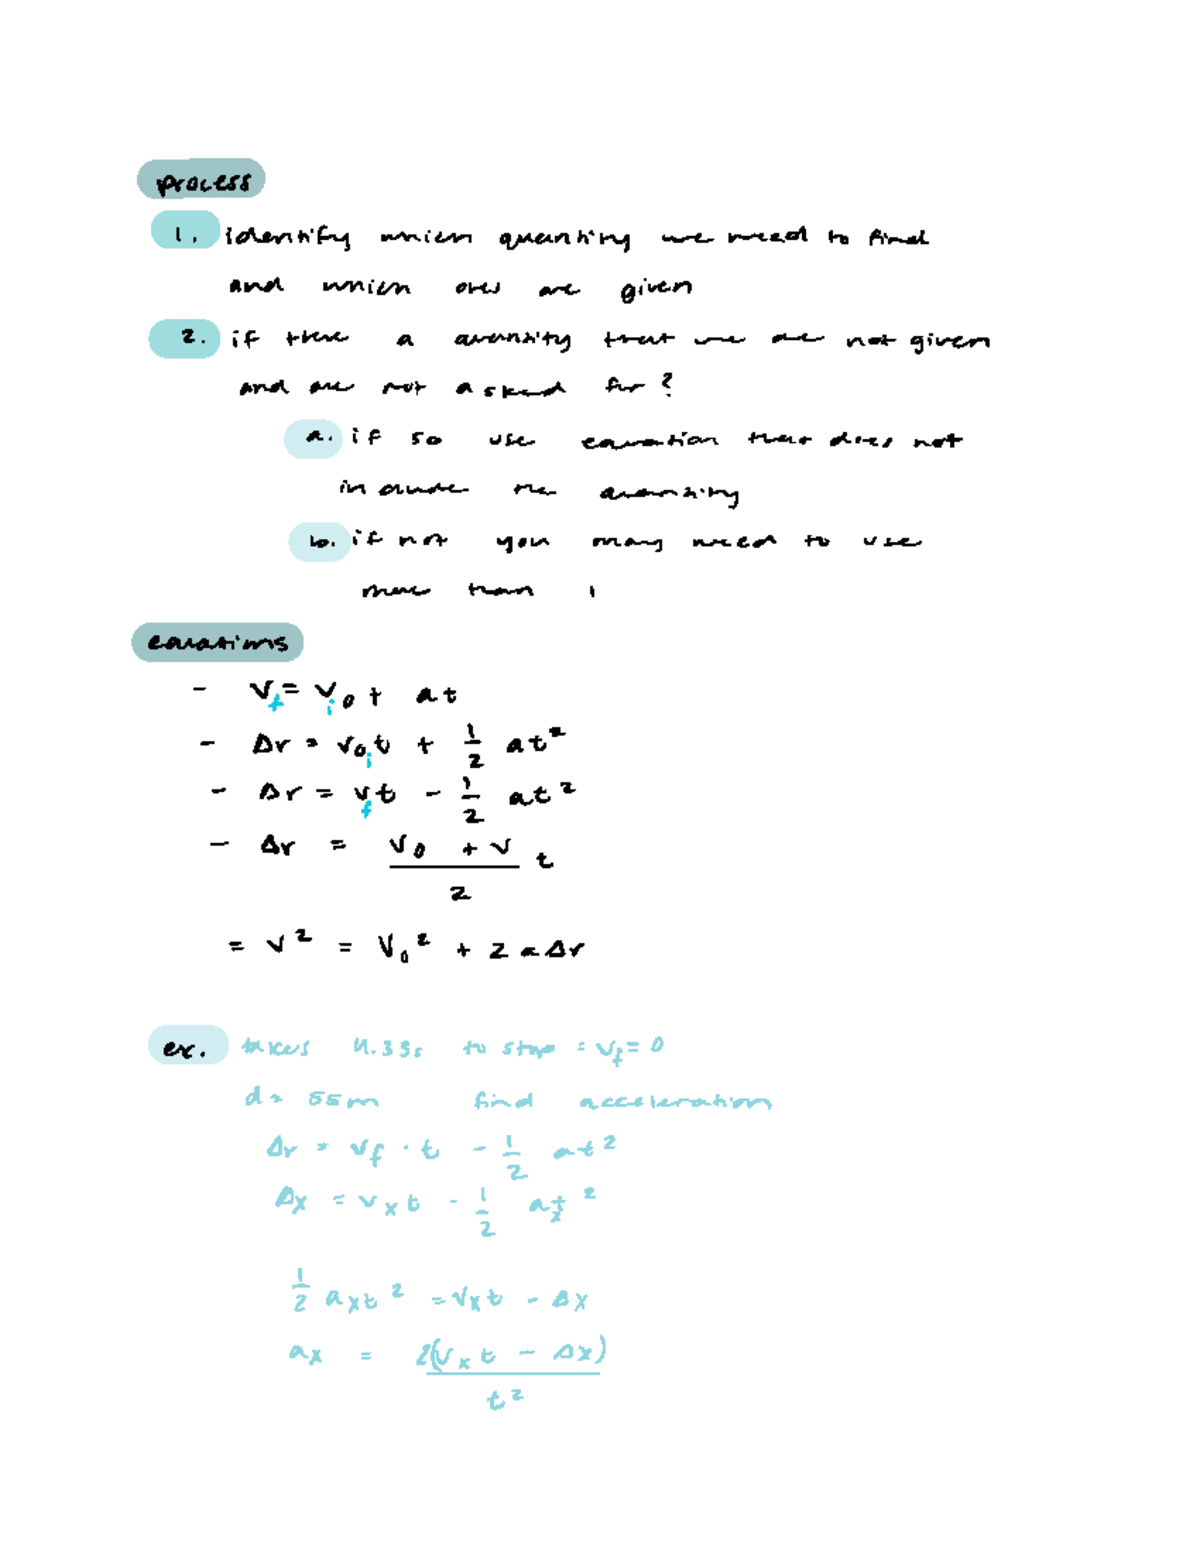 process
1. identify which quantity we need to find
and which ones are given
2. if there a quantity that we are not given
and are not asked for?
a. if so use equation that does not
include the quantity
b. if not you may need to use
more than 1
equations
- Vf = Vi0 + at
- Δr = v0i t + 1/2 at²
- Δr = vf t - 1/2 at²
- Δr = (v0 + v)/2 t
= v² = v0² + 2aΔr
ex. takes 4.39s to stop = vf = 0
d = 55m find acceleration
Δr = vf · t - 1/2 at²
Δx = vx t - 1/2 ax t²
1/2 ax t² = vx t - Δx
ax = 2(vx t - Δx)/t²